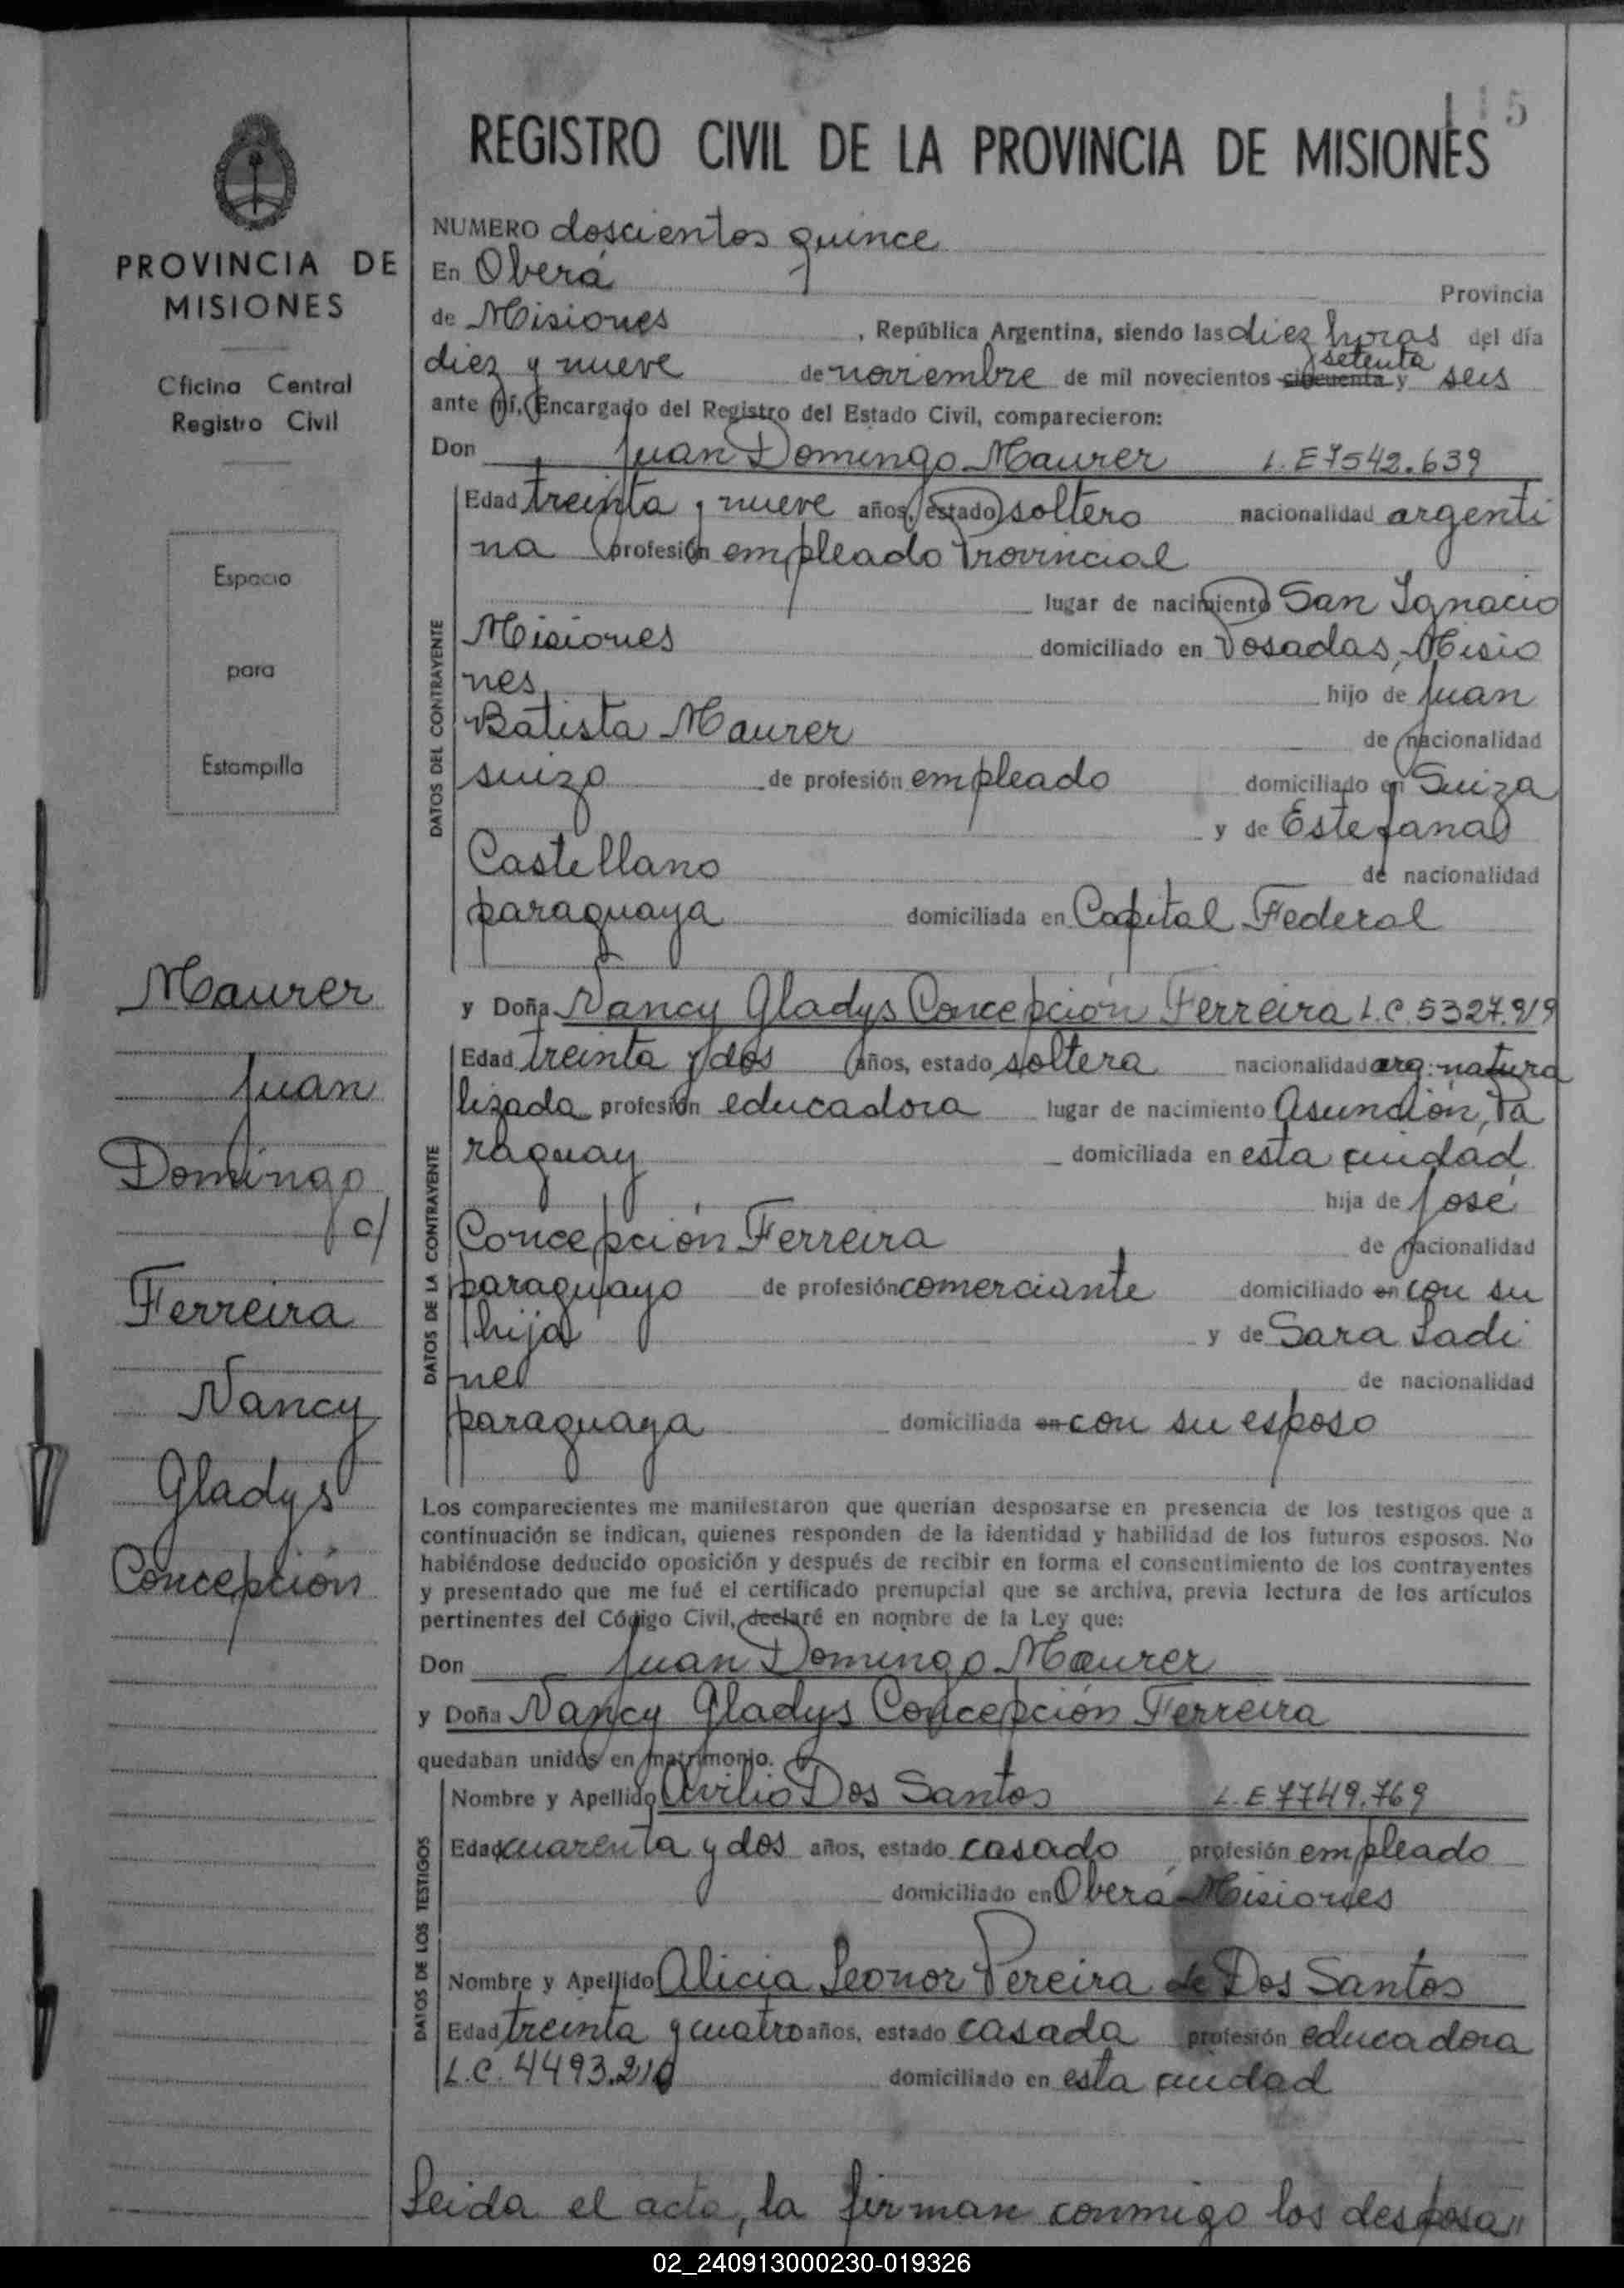 115
REGISTRO CIVIL DE LA PROVINCIA DE MISIONES
PROVINCIA DE
MISIONES
Oficina Central
Registro Civil
Espacio
para
Estampilla
Maurer
Juan
Domingo
c/
Ferreira
Nancy
Gladys
Concepción
NUMERO doscientos quince
En Oberá Provincia
de Misiones, República Argentina, siendo las diez horas del día
setenta
diez y nueve de noviembre de mil novecientos cincuenta y seis
ante mí, Encargado del Registro del Estado Civil, comparecieron:
Don Juan Domingo Maurer L.E 7542.639
DATOS DEL CONTRAYENTE
Edad treinta y nueve años, estado soltero nacionalidad argenti
na profesión empleado Provincial
lugar de nacimiento San Ignacio
Misiones domiciliado en Posadas, Misio
nes hijo de Juan
Batista Maurer de nacionalidad
suizo de profesión empleado domiciliado en Suiza
y de Estefana
Castellano de nacionalidad
paraguaya domiciliada en Capital Federal
y Doña Nancy Gladys Concepción Ferreira L.C. 5327.919
DATOS DE LA CONTRAYENTE
Edad treinta y dos años, estado soltera nacionalidad arg. natura
lizada profesión educadora lugar de nacimiento Asunción, Pa
raguay domiciliada en esta ciudad
hija de José
Concepción Ferreira de nacionalidad
paraguayo de profesión comerciante domiciliado en con su
hija y de Sara Ladi
ne de nacionalidad
paraguaya domiciliada en con su esposo
Los comparecientes me manifestaron que querían desposarse en presencia de los testigos que a
continuación se indican, quienes responden de la identidad y habilidad de los futuros esposos. No
habiéndose deducido oposición y después de recibir en forma el consentimiento de los contrayentes
y presentado que me fué el certificado prenupcial que se archiva, previa lectura de los artículos
pertinentes del Código Civil, declaré en nombre de la Ley que:
Don Juan Domingo Maurer
y Doña Nancy Gladys Concepción Ferreira
quedaban unidos en matrimonio.
DATOS DE LOS TESTIGOS
Nombre y Apellido Avilio Dos Santos L.E 7749.769
Edad cuarenta y dos años, estado casado profesión empleado
domiciliado en Oberá Misiones
Nombre y Apellido Alicia Leonor Pereira de Dos Santos
Edad treinta y cuatro años, estado casada profesión educadora
L.C. 4493.210 domiciliado en esta ciudad
Leida el acta, la firman conmigo los desposa"
02_240913000230-019326